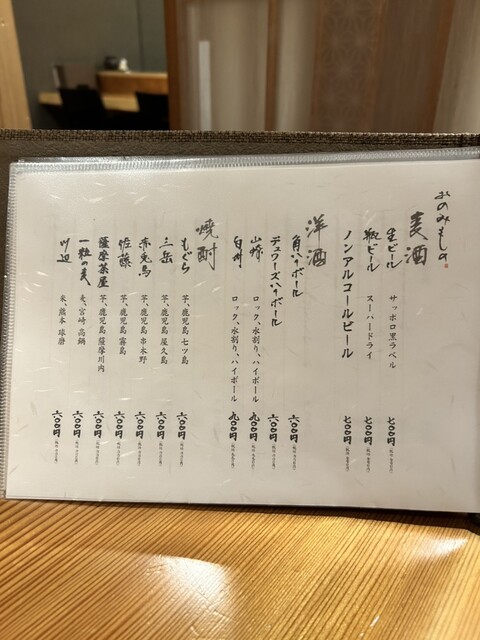 おのみもの
麦酒
生ビール サッポロ黒ラベル 七〇〇円
瓶ビール スーパードライ 七〇〇円
ノンアルコールビール 七〇〇円
洋酒
角ハイボール 六〇〇円
デュワーズハイボール 六〇〇円
山崎 ロック、水割り、ハイボール 九〇〇円
白州 ロック、水割り、ハイボール 九〇〇円
焼酎
もぐら 芋、鹿児島 七ツ島 六〇〇円
三岳 芋、鹿児島 屋久島 六〇〇円
赤兎馬 芋、鹿児島 串木野 六〇〇円
佐藤 芋、鹿児島 霧島 六〇〇円
薩摩茶屋 芋、鹿児島 薩摩川内 六〇〇円
一粒の麦 麦、宮崎 高鍋 六〇〇円
川辺 米、熊本 球磨 六〇〇円